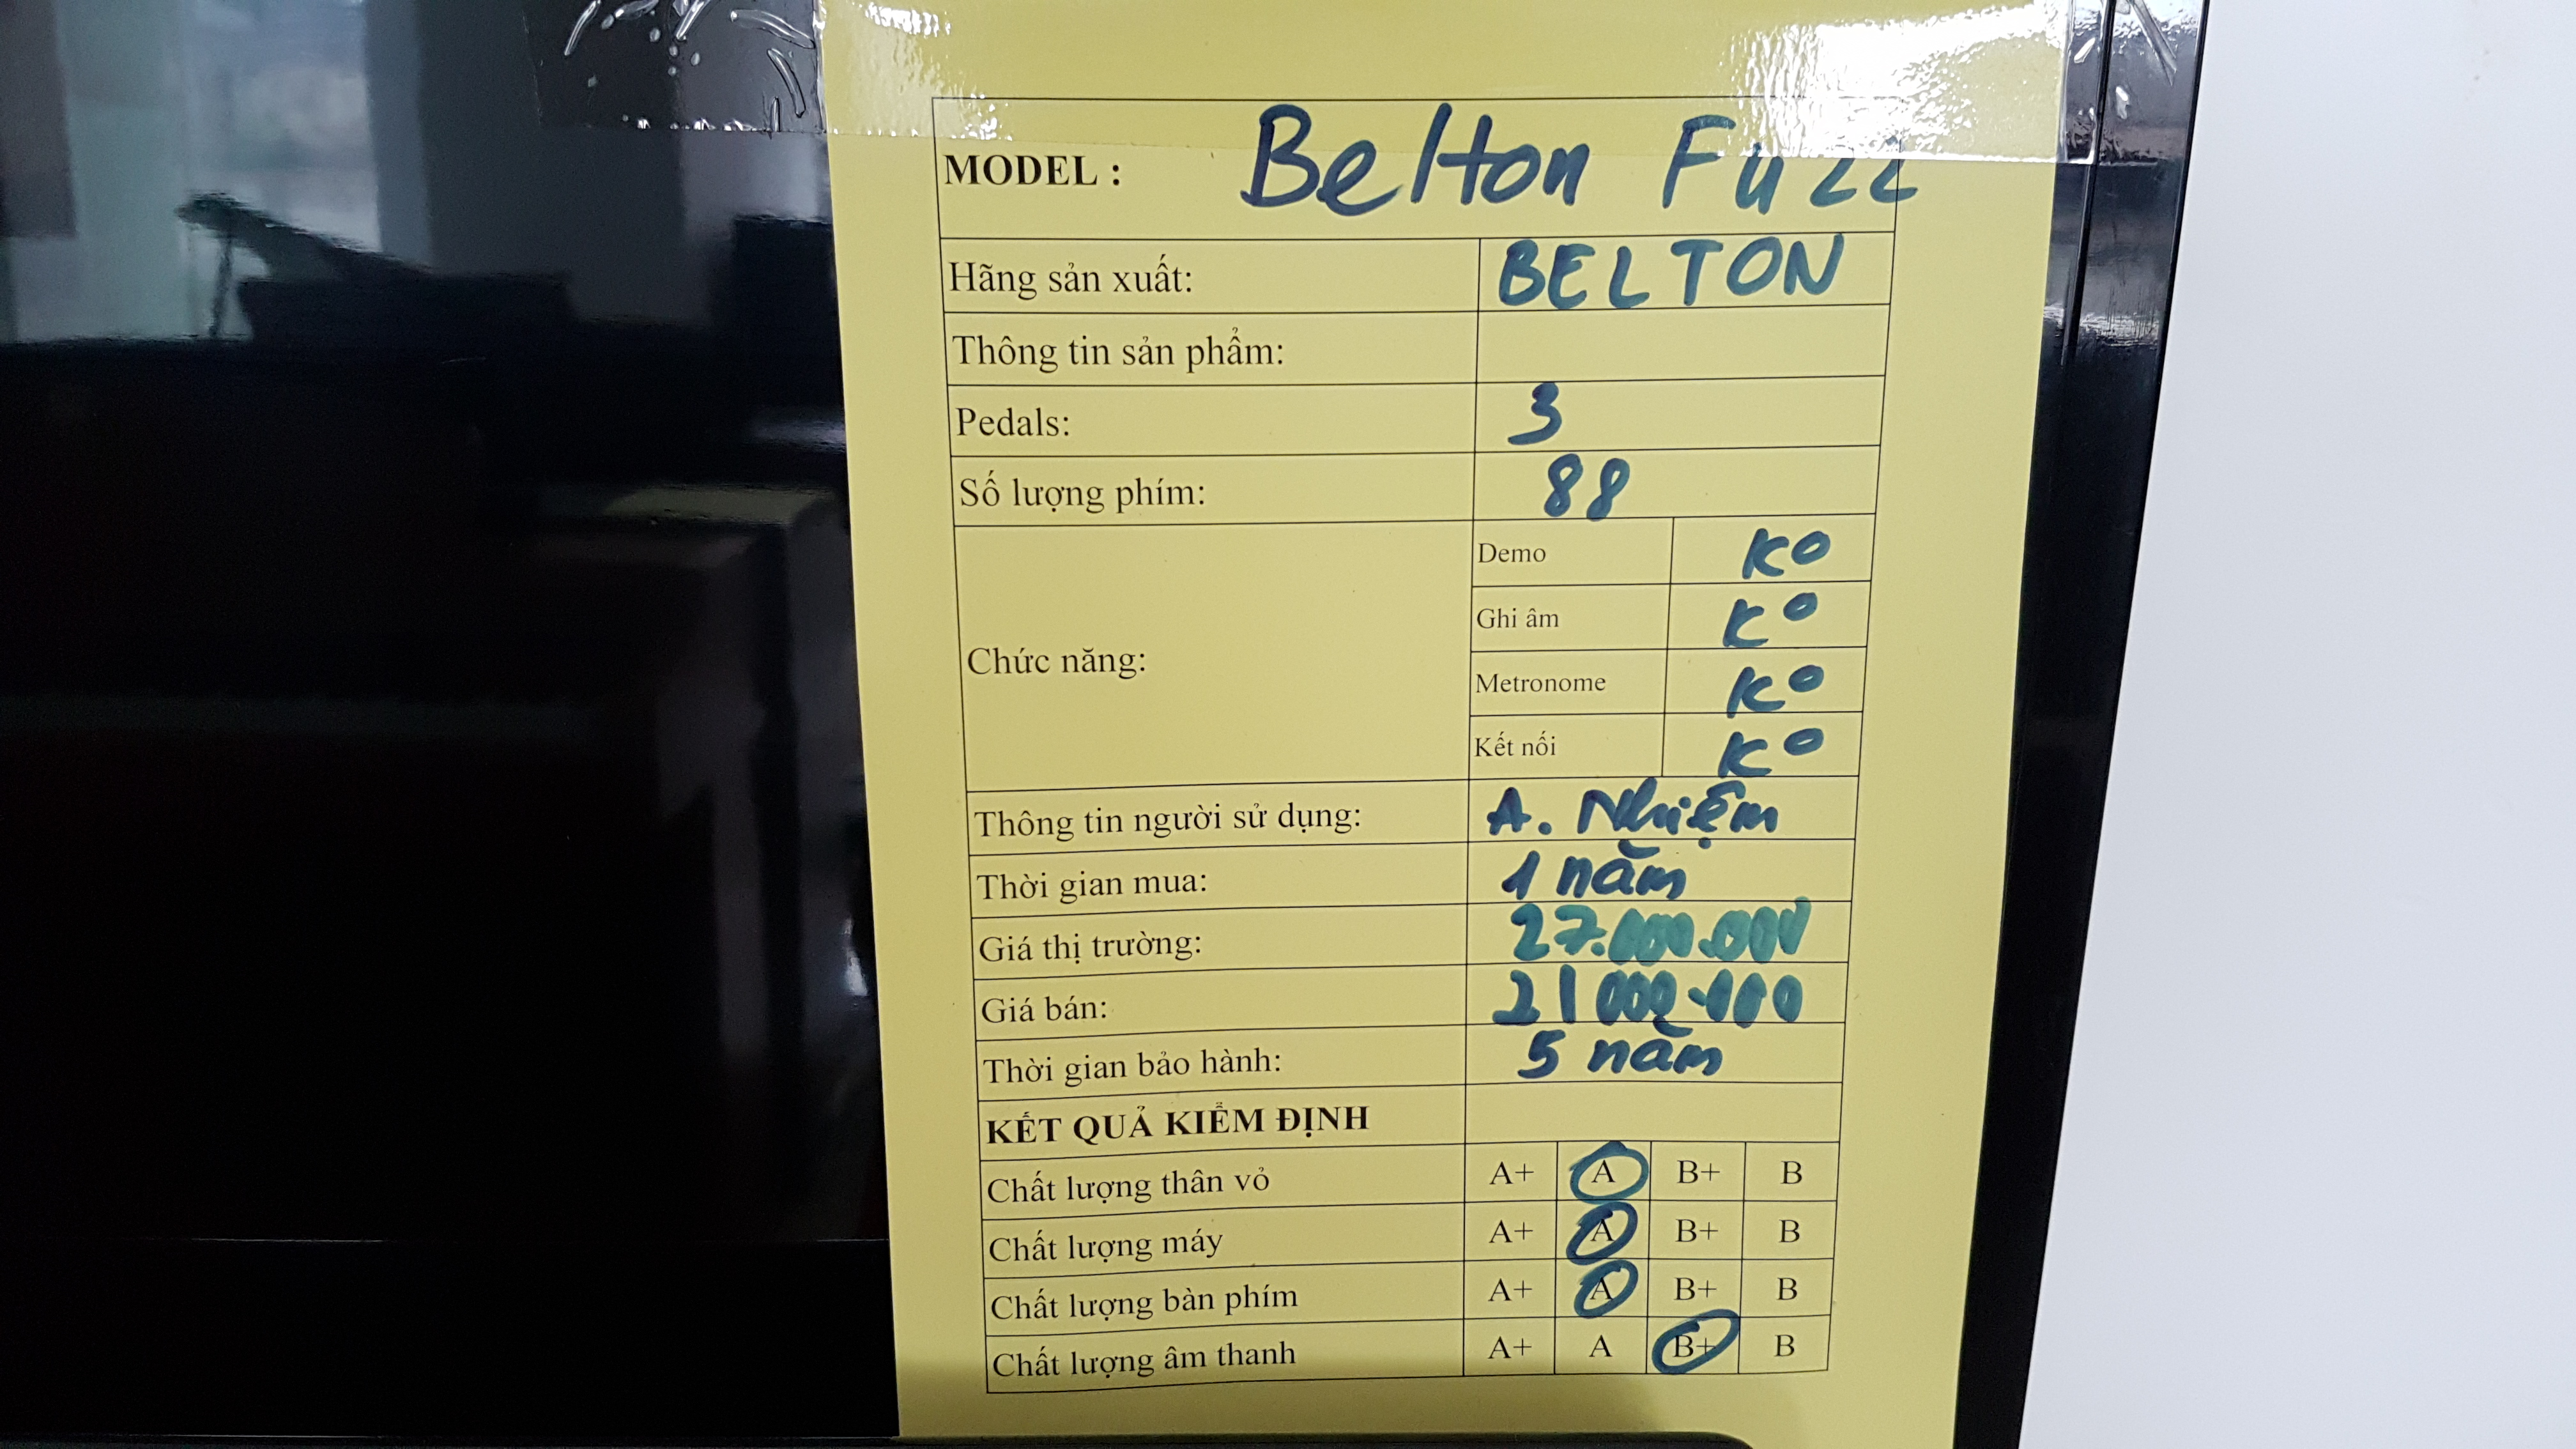 MODEL : Belton Fuzz
Hãng sản xuất: BELTON
Thông tin sản phẩm:
Pedals: 3
Số lượng phím: 88
Chức năng:
Demo KO
Ghi âm KO
Metronome KO
Kết nối KO
Thông tin người sử dụng: A. Nhiệm
Thời gian mua: 1 năm
Giá thị trường: 27.000.000
Giá bán: 21 000.000
Thời gian bảo hành: 5 năm
KẾT QUẢ KIỂM ĐỊNH
Chất lượng thân vỏ A+ A B+ B
Chất lượng máy A+ A B+ B
Chất lượng bàn phím A+ A B+ B
Chất lượng âm thanh A+ A B+ B